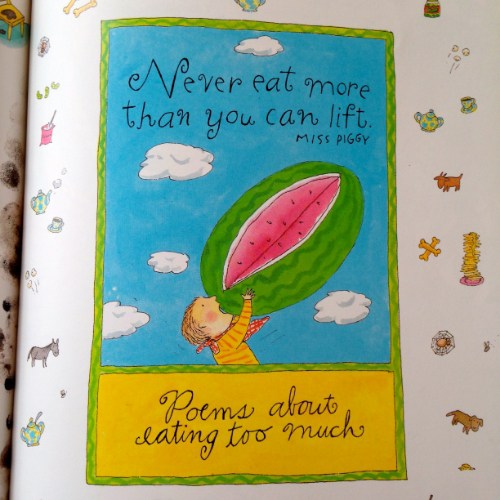 Never eat more
than you can lift.
MISS PIGGY
Poems about
eating too much